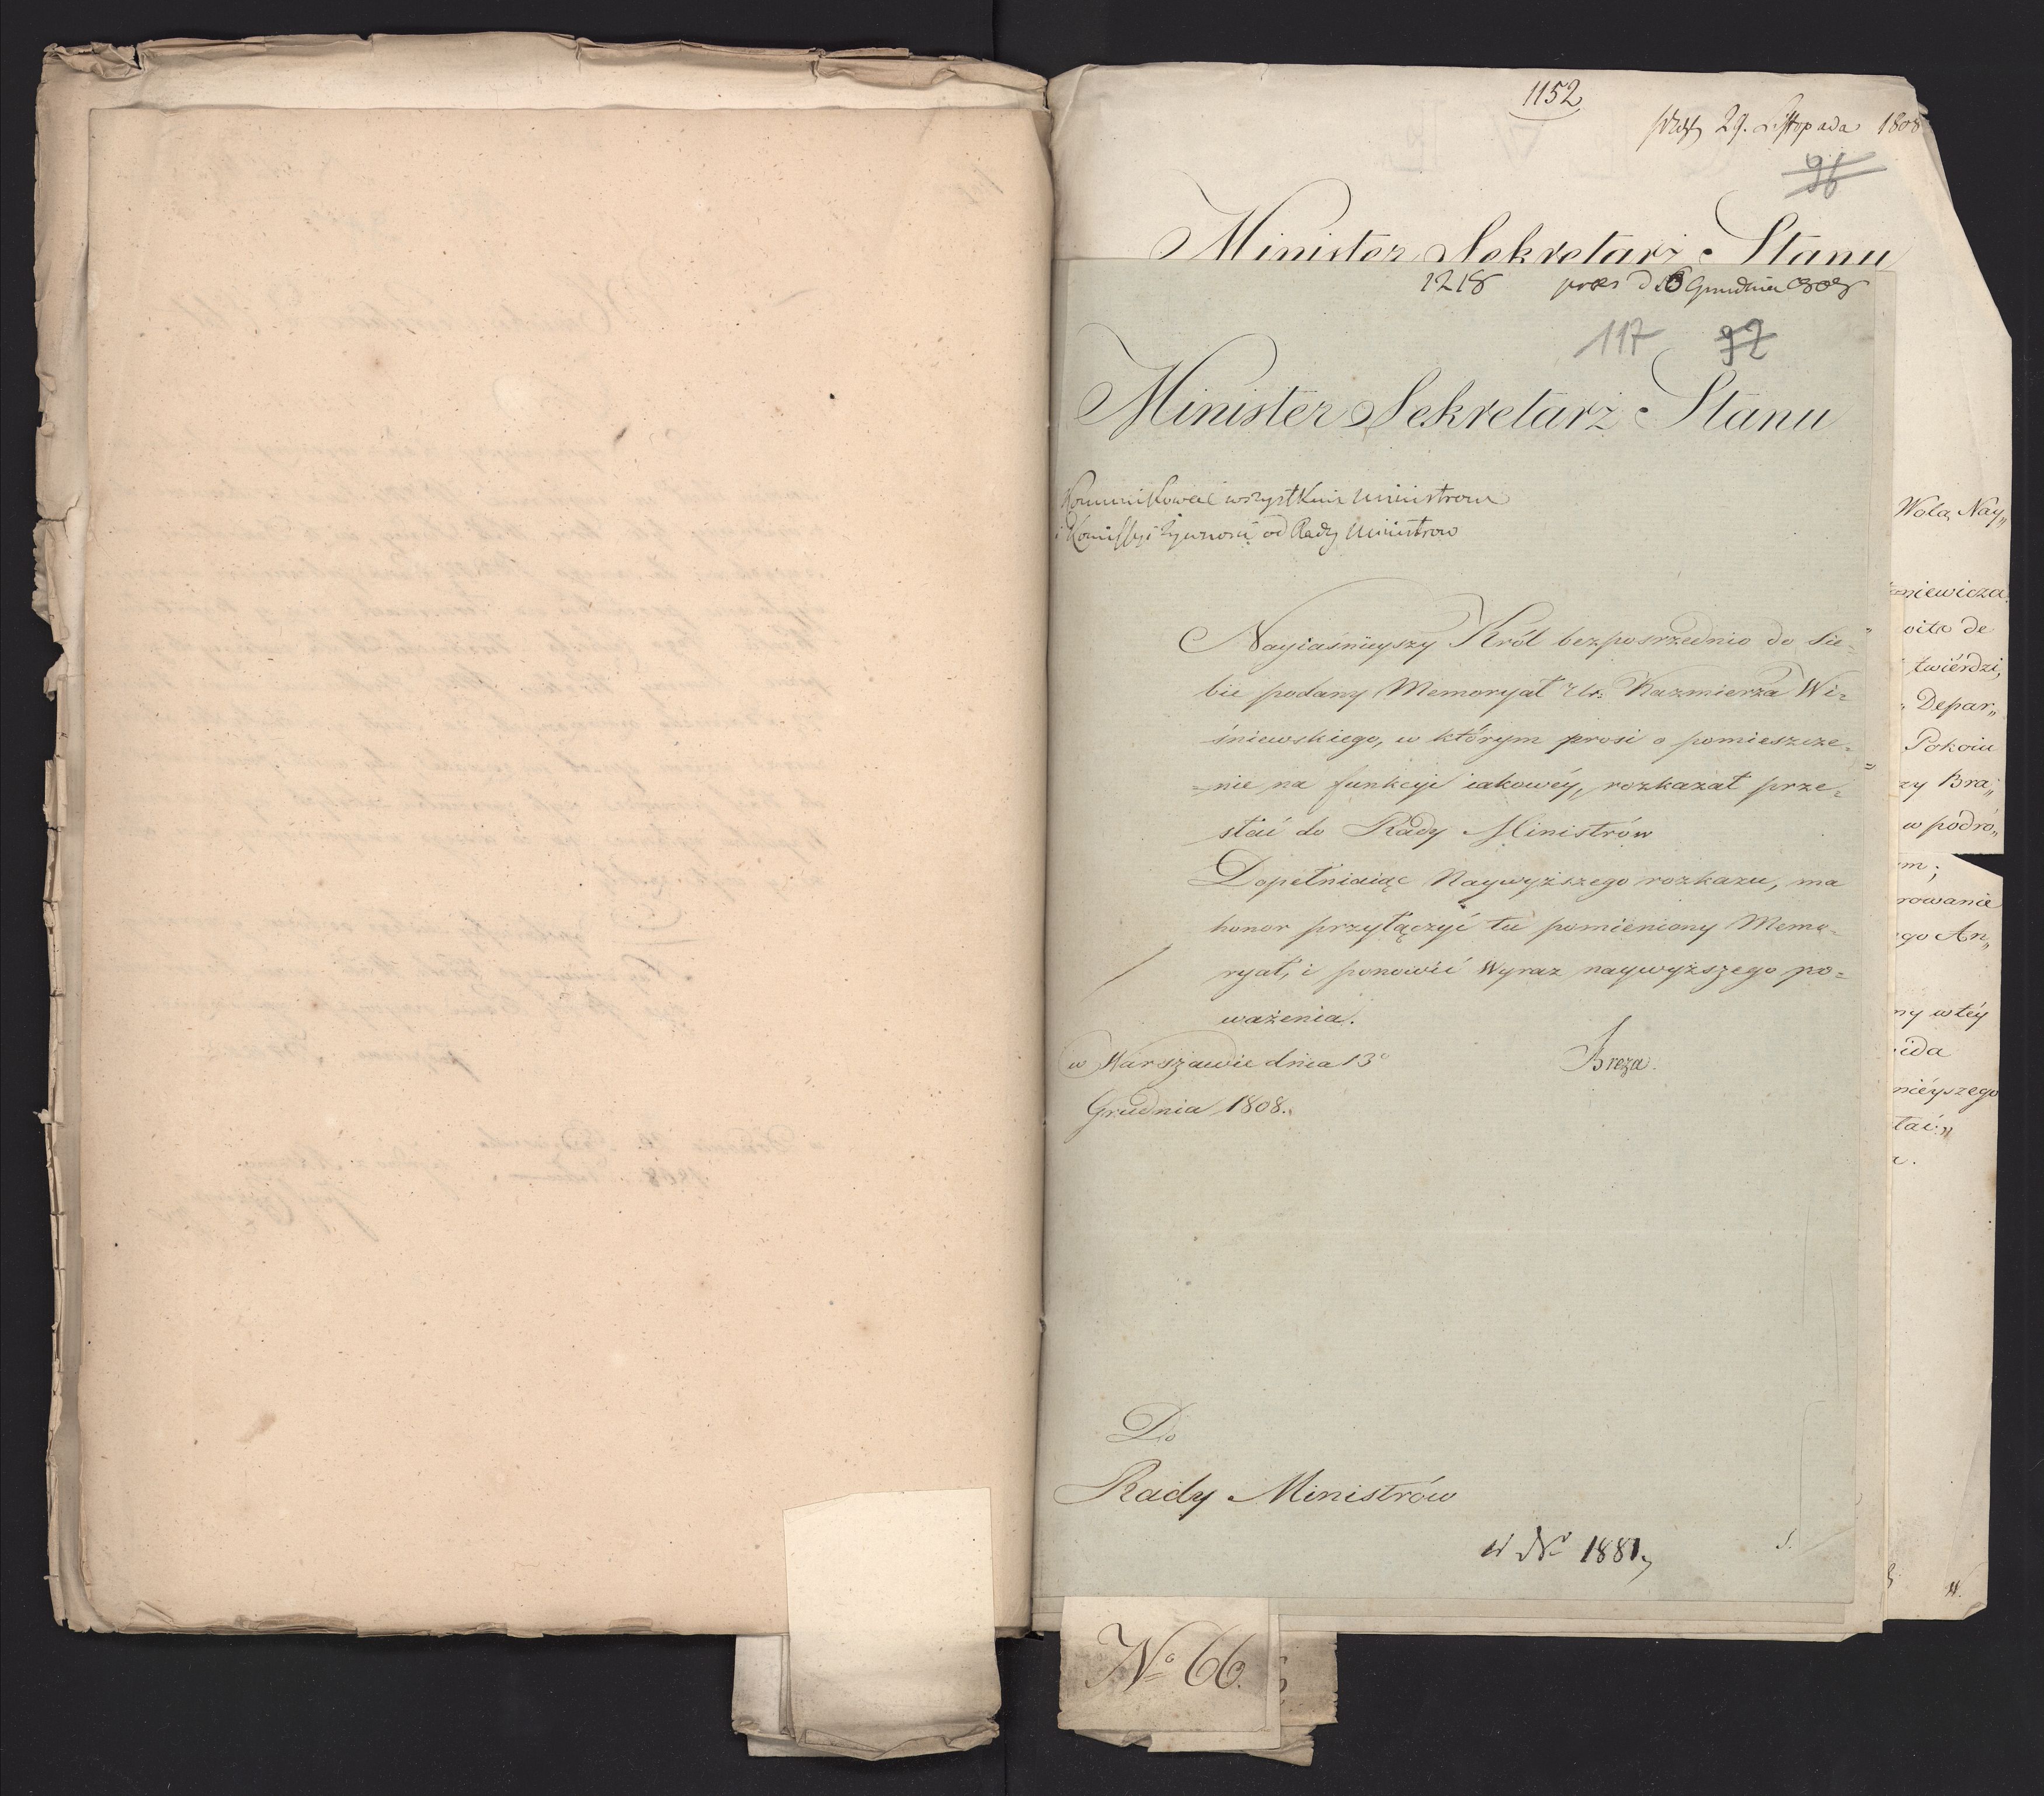 1152
29. Listopada 1808
96
Minister Sekretarz Stanu
1218 prez d 16 Grudnia 1808
117 97
Minister Sekretarz Stanu
Kommunikować wszystkim Ministrom
i Komissyi żywności od Rady Ministrow
Nayiaśnieyszy Król bezposrzednio do Sie=
bie podany Memoryał Ur. Kazmierza Wi=
śniewskiego, w którym prosi o pomieszcze=
=nie na funkcyi iakowéy, rozkazał prze=
słać do Rady Ministrów
Dopełniaiąc Naywyższego rozkazu, ma
honor przyłączyć tu pomieniony Memo=
ryał, i ponowić Wyraz naywyższego po=
ważenia.
w Warszawie dnia 13°
Breza.
Grudnia 1808.
Do
Rady Ministrów
N° 1881
S.
N° 66.
Wolą Nay„
niewicza
oito de
twiérdzi,
Depar„
Pokoiu
zy Bra„
w podró„
m;
rowanie
go An„
ny w téy
ida
nieyszego
tai„
a.